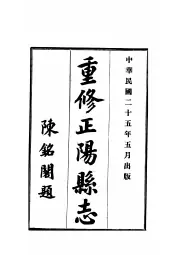 中華民國二十五年五月出版
重修正陽縣志
陳銘閣題